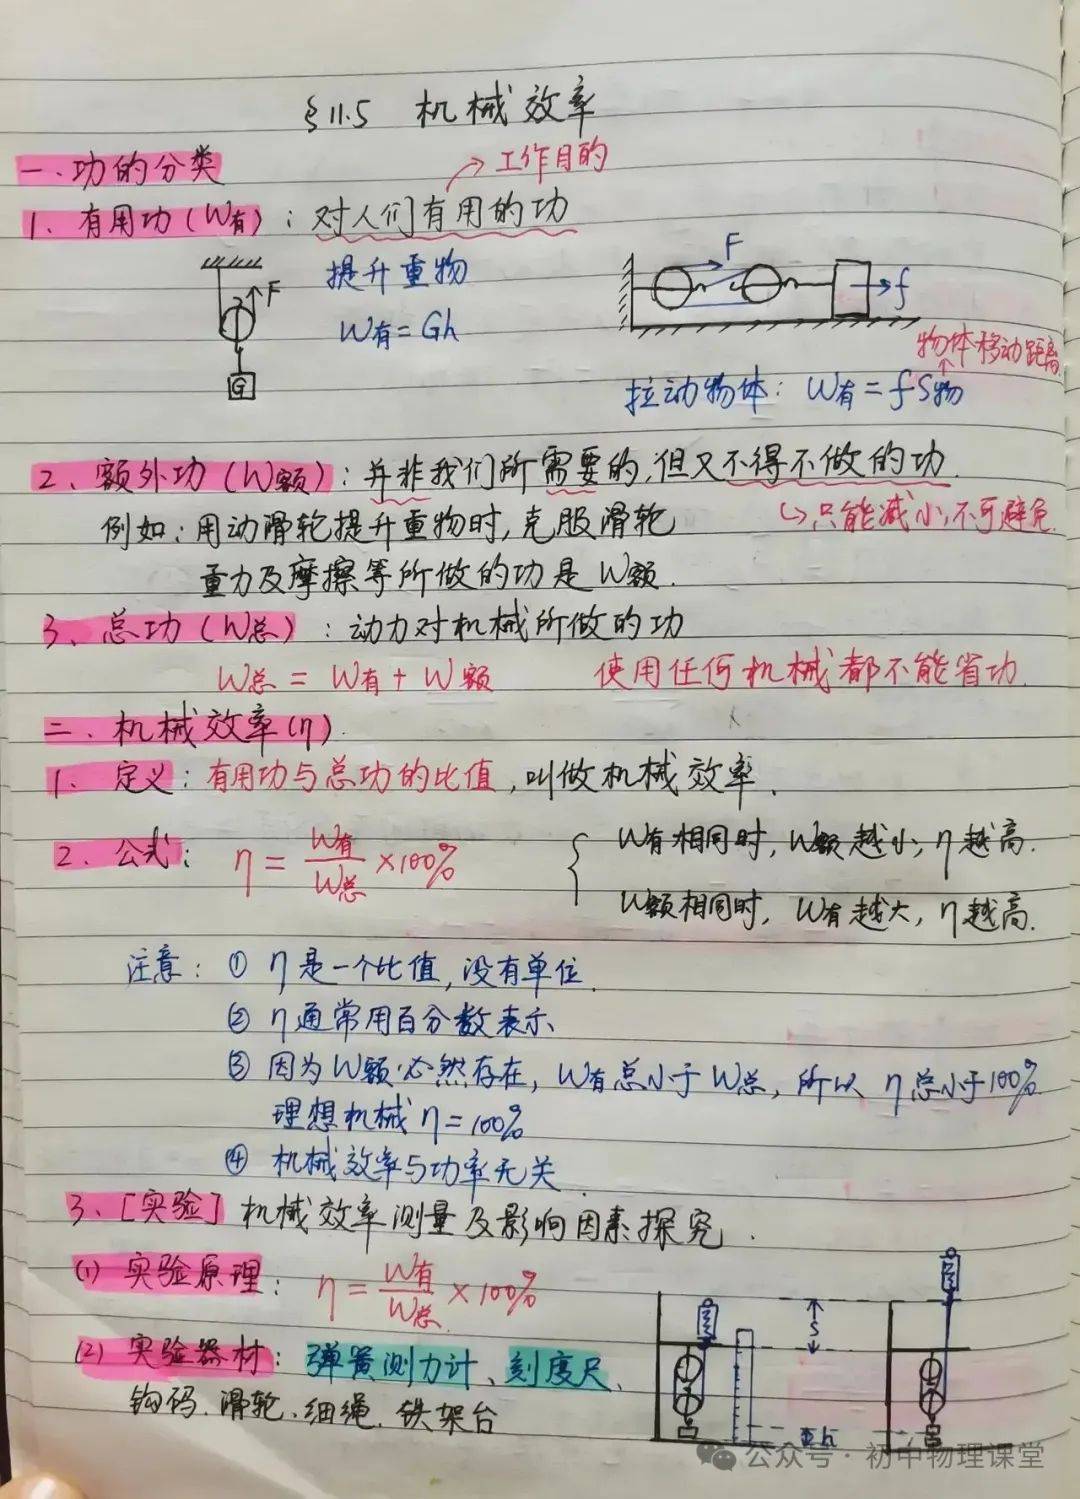 §11.5 机械效率
一、功的分类
→工作目的
1. 有用功(W有)：对人们有用的功
F
G
提升重物
W有=Gh
F
f
物体移动距离
拉动物体：W有=fS物
2、额外功(W额)：并非我们所需要的,但又不得不做的功.
↳只能减小,不可避免.
例如：用动滑轮提升重物时,克服滑轮
重力及摩擦等所做的功是W额.
3、总功(W总)：动力对机械所做的功
W总=W有+W额 使用任何机械都不能省功.
二、机械效率(η).
1. 定义：有用功与总功的比值,叫做机械效率.
2. 公式：η=W有/W总×100%
W有相同时,W额越小,η越高.
W额相同时,W有越大,η越高.
注意：① η是一个比值,没有单位.
② η通常用百分数表示
③ 因为W额必然存在,W有总小于W总,所以η总小于100%.
理想机械η=100%
④ 机械效率与功率无关.
3、[实验]机械效率测量及影响因素探究.
(1) 实验原理：η=W有/W总×100%
(2) 实验器材：弹簧测力计、刻度尺、
钩码、滑轮、细绳、铁架台
S
h
公众号·初中物理课堂